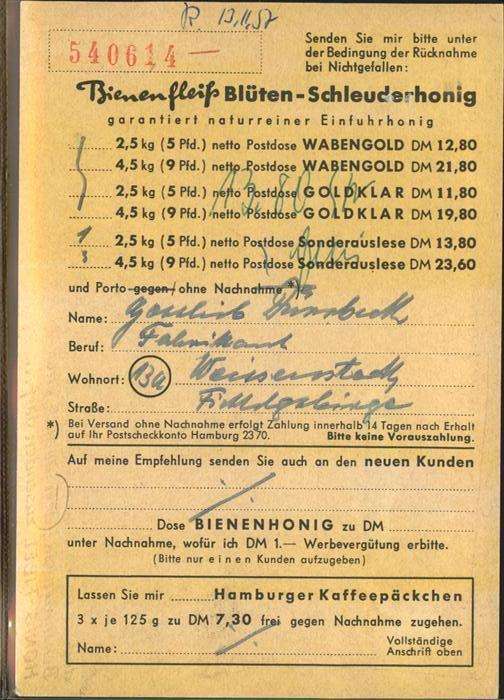 R. 13.11.57
540614 —
Senden Sie mir bitte unter
der Bedingung der Rücknahme
bei Nichtgefallen:
Bienenfleiß Blüten-Schleuderhonig
garantiert naturreiner Einfuhrhonig
2,5 kg (5 Pfd.) netto Postdose WABENGOLD DM 12,80
4,5 kg (9 Pfd.) netto Postdose WABENGOLD DM 21,80
2,5 kg (5 Pfd.) netto Postdose GOLDKLAR DM 11,80
4,5 kg (9 Pfd.) netto Postdose GOLDKLAR DM 19,80
1 2,5 kg (5 Pfd.) netto Postdose Sonderauslese DM 13,80
4,5 kg (9 Pfd.) netto Postdose Sonderauslese DM 23,60
und Porto gegen/ ohne Nachnahme *)
Name: Gottlieb
Beruf: Fabrikant
Wohnort: 13a Weissenstadt
Straße: Fichtelgebirge
*) Bei Versand ohne Nachnahme erfolgt Zahlung innerhalb 14 Tagen nach Erhalt
auf Ihr Postscheckkonto Hamburg 2370. Bitte keine Vorauszahlung.
Auf meine Empfehlung senden Sie auch an den neuen Kunden
Dose BIENENHONIG zu DM
unter Nachnahme, wofür ich DM 1.— Werbevergütung erbitte.
(Bitte nur einen Kunden aufzugeben)
Lassen Sie mir Hamburger Kaffeepäckchen
3 x je 125 g zu DM 7,30 frei gegen Nachnahme zugehen.
Name: Vollständige
Anschrift oben